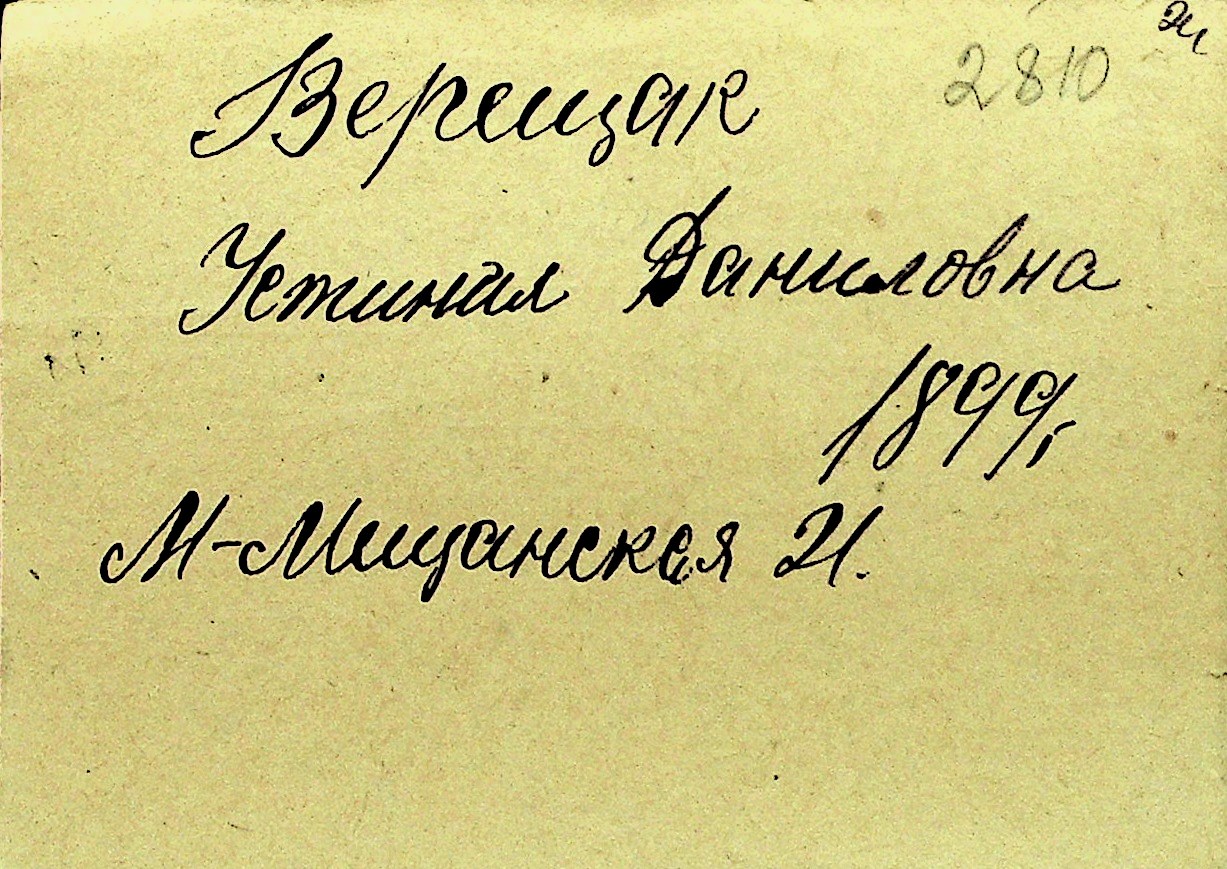 2810
Верещак
Устиная Даниловна
1899г
М-Мищанская 21.